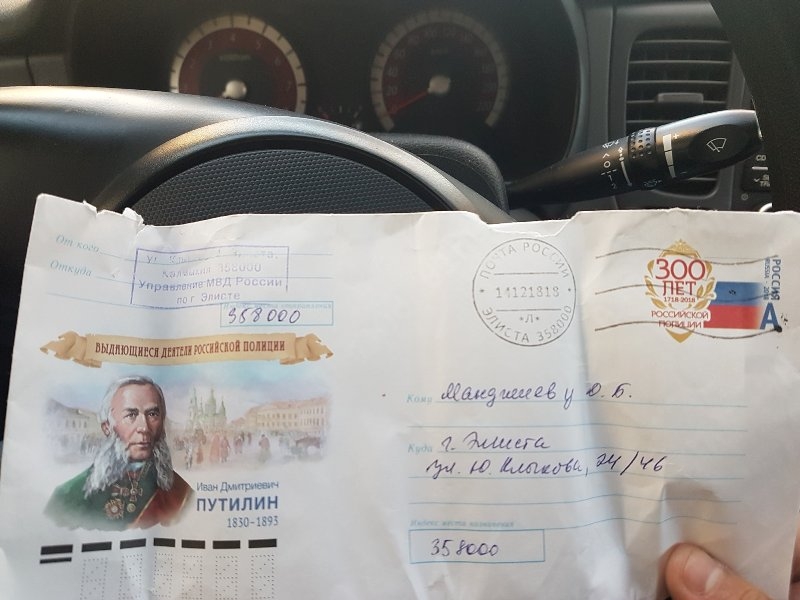 От кого
Откуда
Калмыкия 358000
Управление МВД России
по г. Элисте
358000
ВЫДАЮЩИЕСЯ ДЕЯТЕЛИ РОССИЙСКОЙ ПОЛИЦИИ
Иван Дмитриевич
ПУТИЛИН
1830-1893
ПОЧТА РОССИИ
14121818
*Л*
ЭЛИСТА 358000
300
ЛЕТ
1718-2018
РОССИЙСКОЙ
ПОЛИЦИИ
РОССИЯ
RUSSIA 2018
А
Кому Манджиеву О. Б.
Куда г. Элиста
ул. Ю. Клыкова, 24/46
Индекс места назначения
358000